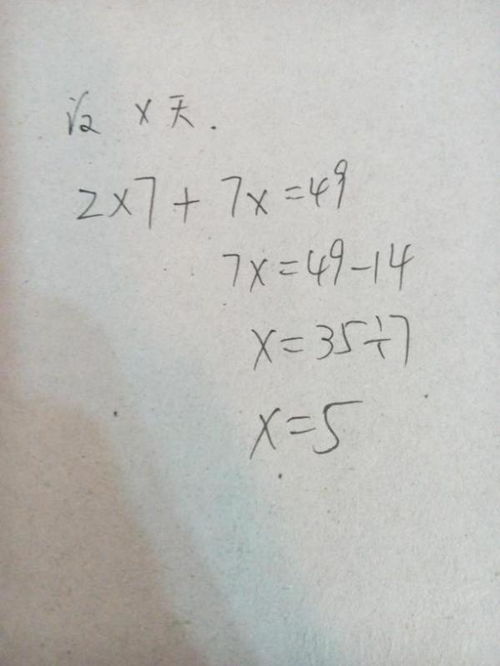 设 x天.
2×7+7x=49
7x=49-14
x=35÷7
x=5